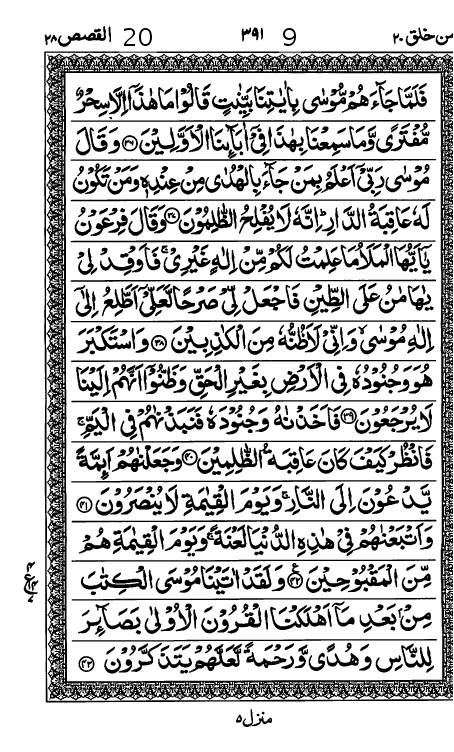 من خلق ٢٠ 9 ٣٩١ 20 القصص ٢٨
فَلَمَّا جَآءَهُمْ مُّوْسٰى بِاٰيٰتِنَا بَيِّنٰتٍ قَالُوْا مَا هٰذَآ اِلَّا سِحْرٌ
مُّفْتَرًى وَّمَا سَمِعْنَا بِهٰذَا فِىْٓ اٰبَآئِنَا الْاَوَّلِيْنَ ﴿٣٦﴾ وَقَالَ
مُوْسٰى رَبِّىْٓ اَعْلَمُ بِمَنْ جَآءَ بِالْهُدٰى مِنْ عِنْدِهٖ وَمَنْ تَكُوْنُ
لَهٗ عَاقِبَةُ الدَّارِ ؕ اِنَّهٗ لَا يُفْلِحُ الظّٰلِمُوْنَ ﴿٣٧﴾ وَقَالَ فِرْعَوْنُ
يٰٓاَيُّهَا الْمَلَاُ مَا عَلِمْتُ لَكُمْ مِّنْ اِلٰهٍ غَيْرِىْ ۚ فَاَوْقِدْ لِىْ
يٰهَامٰنُ عَلَى الطِّيْنِ فَاجْعَلْ لِّىْ صَرْحًا لَّعَلِّىْٓ اَطَّلِعُ اِلٰٓى
اِلٰهِ مُوْسٰى ۙ وَاِنِّىْ لَاَظُنُّهٗ مِنَ الْكٰذِبِيْنَ ﴿٣٨﴾ وَاسْتَكْبَرَ
هُوَ وَجُنُوْدُهٗ فِى الْاَرْضِ بِغَيْرِ الْحَقِّ وَظَنُّوْٓا اَنَّهُمْ اِلَيْنَا
لَا يُرْجَعُوْنَ ﴿٣٩﴾ فَاَخَذْنٰهُ وَجُنُوْدَهٗ فَنَبَذْنٰهُمْ فِى الْيَمِّ ۚ
فَانْظُرْ كَيْفَ كَانَ عَاقِبَةُ الظّٰلِمِيْنَ ﴿٤٠﴾ وَجَعَلْنٰهُمْ اَئِمَّةً
يَّدْعُوْنَ اِلَى النَّارِ ۚ وَيَوْمَ الْقِيٰمَةِ لَا يُنْصَرُوْنَ ﴿٤١﴾
وَاَتْبَعْنٰهُمْ فِىْ هٰذِهِ الدُّنْيَا لَعْنَةً ۚ وَيَوْمَ الْقِيٰمَةِ هُمْ
مِّنَ الْمَقْبُوْحِيْنَ ﴿٤٢﴾ وَلَقَدْ اٰتَيْنَا مُوْسَى الْكِتٰبَ
مِنْۢ بَعْدِ مَآ اَهْلَكْنَا الْقُرُوْنَ الْاُوْلٰى بَصَآئِرَ
لِلنَّاسِ وَهُدًى وَّرَحْمَةً لَّعَلَّهُمْ يَتَذَكَّرُوْنَ ﴿٤٣﴾
منزل ٥